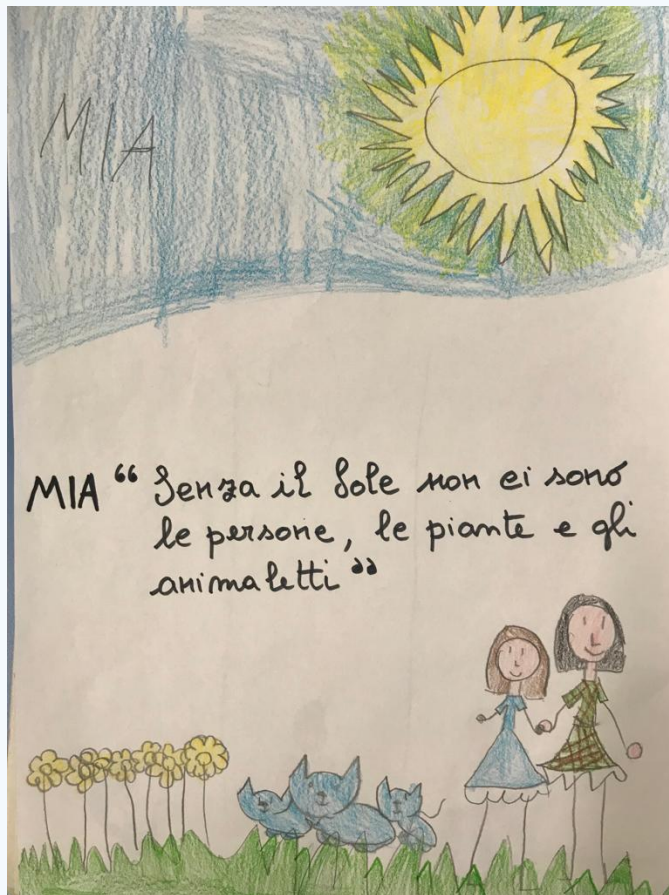 MIA
MIA “ Senza il Sole non ci sono
le persone, le piante e gli
animaletti ”